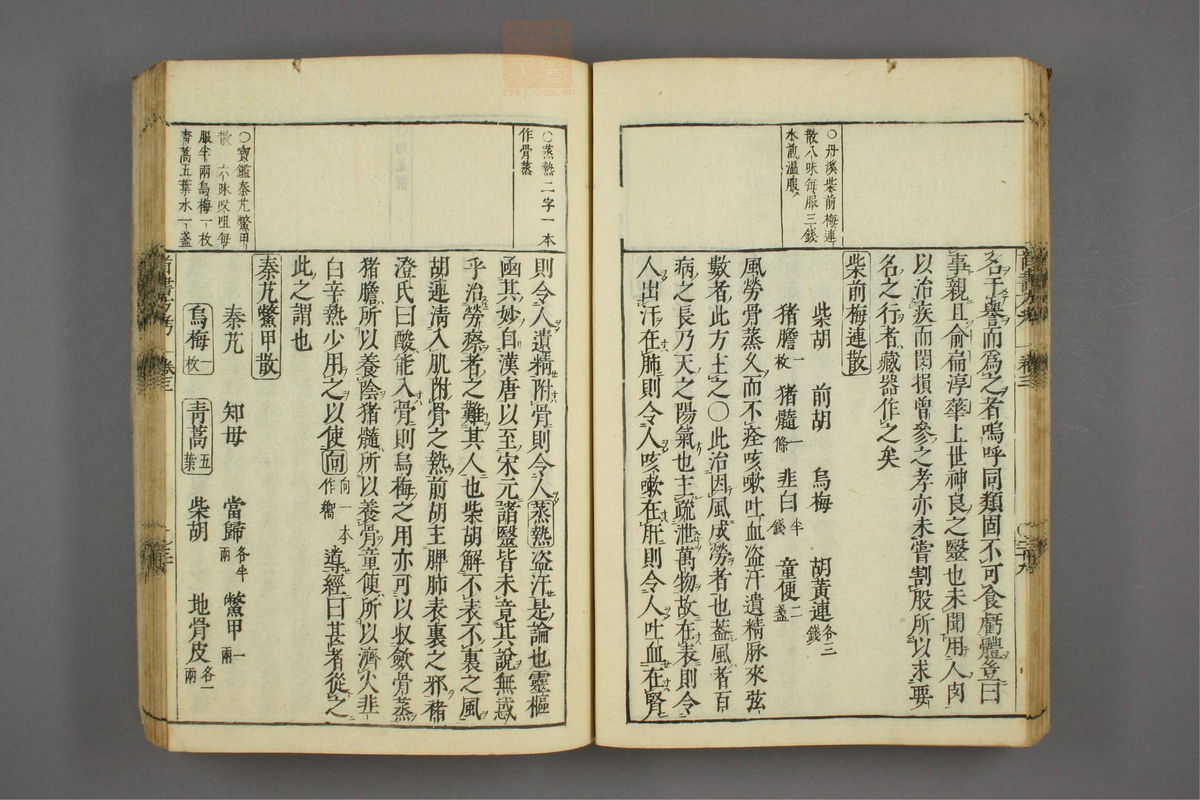 名于譽而爲之者嗚呼同類固不可食虧體豈曰
事親且俞扁淳華上世神良之醫也未聞用人肉
以治疾而閔損曾參之孝亦未嘗割股所以求要
名之行者藏器作之矣
○丹溪柴前梅連
散八味每服三錢
水煎溫服
柴前梅連散
柴胡 前胡 烏梅 胡黃連各三錢
猪膽一枚 猪髓一條 韭白半錢 童便二盞
風勞骨蒸久而不痊咳嗽吐血盜汗遺精脉來弦
數者此方主之○此治因風成勞者也蓋風者百
病之長乃天之陽氣也主疏泄萬物故在表則令
人出汗在肺則令人咳嗽在肝則令人吐血在腎
○蒸熱二字一本
作骨蒸
則令人遺精附骨則令人蒸熱盜汗是論也靈樞
函其妙自漢唐以至宋元諸醫皆未竟其說無惑
乎治勞瘵者之難其人也柴胡解不表不裏之風
胡連清入肌附骨之熱前胡主脾肺表裏之邪褚
澄氏曰酸能入骨則烏梅之用亦可以收斂骨蒸
猪膽所以養陰猪髓所以養骨童便所以濟火韭
白辛熱少用之以使向向一本作嚮導經曰甚者從之
此之謂也
○寶鑑秦艽鱉甲
散 六味㕮咀每
服半兩烏梅一枚
青蒿五葉水一盞
秦艽鱉甲散
秦艽 知母 當歸各半兩 鱉甲一兩
烏梅一枚 青蒿五葉 柴胡 地骨皮各一兩
卷三